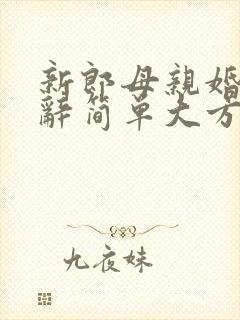 新郎母親婚
辭简单大方
九夜妹